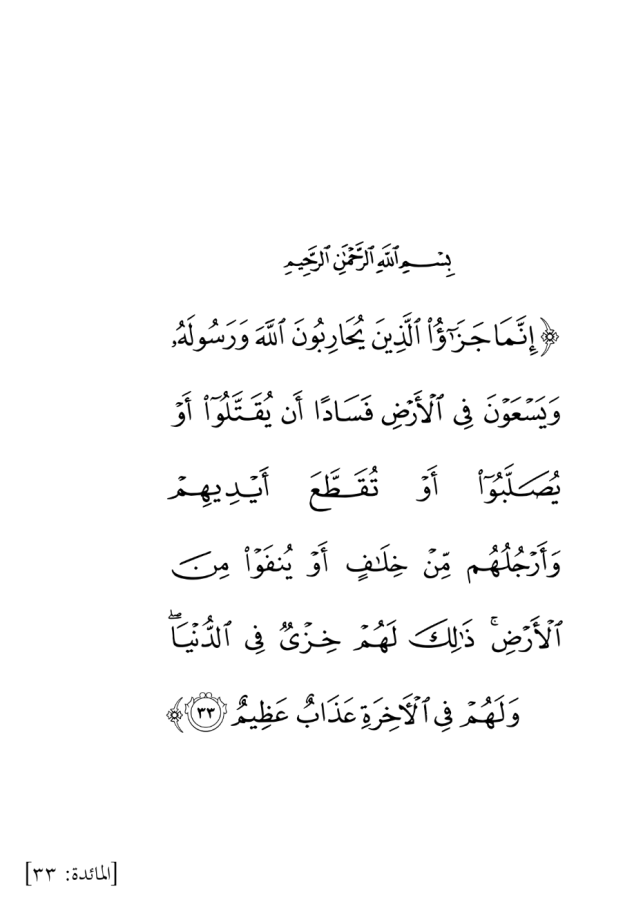 بِسْمِ ٱللَّهِ ٱلرَّحْمَٰنِ ٱلرَّحِيمِ
﴿إِنَّمَا جَزَٰٓؤُا۟ ٱلَّذِينَ يُحَارِبُونَ ٱللَّهَ وَرَسُولَهُۥ
وَيَسْعَوْنَ فِى ٱلْأَرْضِ فَسَادًا أَن يُقَتَّلُوٓا۟ أَوْ
يُصَلَّبُوٓا۟ أَوْ تُقَطَّعَ أَيْدِيهِمْ
وَأَرْجُلُهُم مِّنْ خِلَٰفٍ أَوْ يُنفَوْا۟ مِنَ
ٱلْأَرْضِ ۚ ذَٰلِكَ لَهُمْ خِزْىٌ فِى ٱلدُّنْيَا ۖ
وَلَهُمْ فِى ٱلْـَٔاخِرَةِ عَذَابٌ عَظِيمٌ ٣٣﴾
[المائدة: ٣٣]